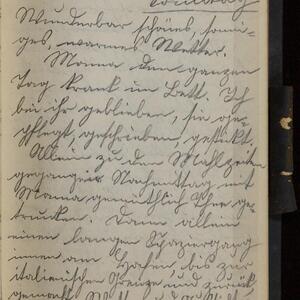 Sonntag
Wunderbar schönes, sonni-
ges, warmes Wetter.
Mama den ganzen
Tag krank im Bett. Ich
bin ihr geblieben, sie ge-
pflegt, geschrieben, gestickt.
Allein zu den Mahlzeiten
gegangen. Nachmittag mit
Mama gemütlich Thee ge-
trunken. Dann allein
einen langen Spaziergang
am Hafen bis zur
italienischen Grenze und zurück
gemacht.